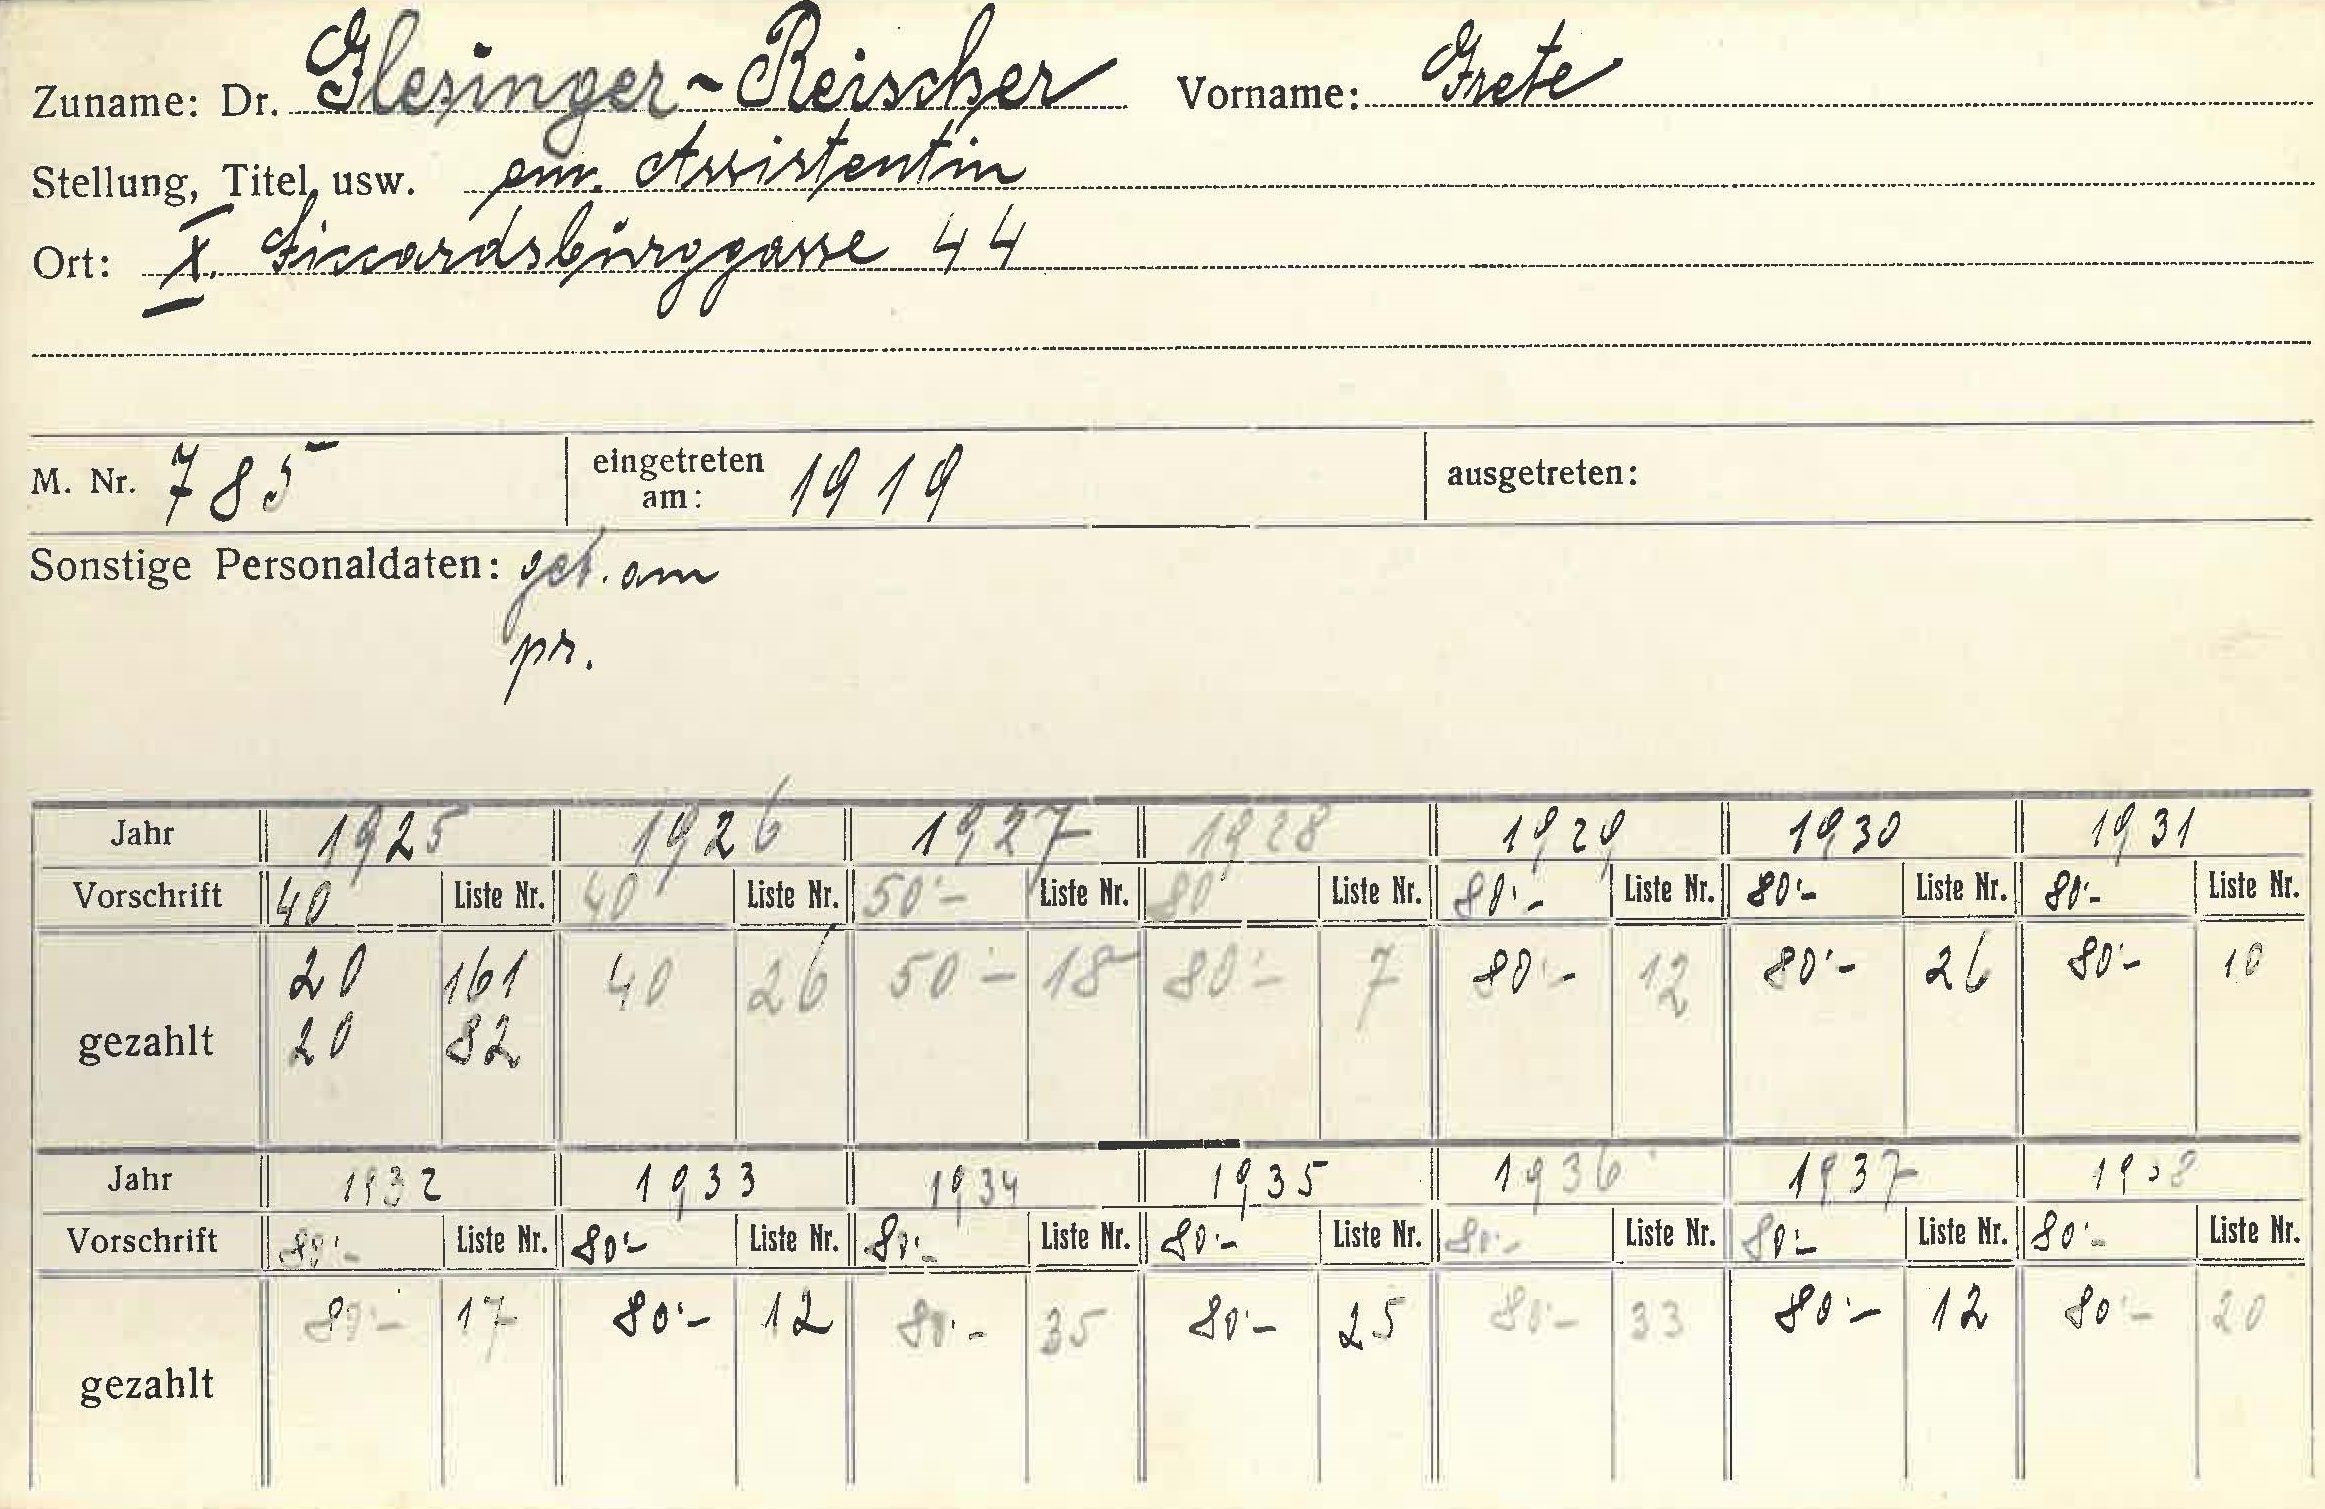 Zuname: Dr. Glesinger-Reischer Vorname: Grete
Stellung, Titel usw. em. Assistentin
Ort: X. Siccardsburggasse 44
M. Nr. 785 eingetreten am: 1919 ausgetreten:
Sonstige Personaldaten: geb. am
pr.
Jahr 1925 1926 1927 1928 1929 1930 1931
Vorschrift 40 Liste Nr. 40 Liste Nr. 50·– Liste Nr. 80 Liste Nr. 80·– Liste Nr. 80·– Liste Nr. 80·– Liste Nr.
20 161 40 26 50·– 18 80·– 7 80·– 12 80·– 26 80·– 10
gezahlt 20 82
Jahr 1932 1933 1934 1935 1936 1937 1938
Vorschrift 80·– Liste Nr. 80·– Liste Nr. 80·– Liste Nr. 80·– Liste Nr. 80·– Liste Nr. 80·– Liste Nr. 80·– Liste Nr.
80·– 17 80·– 12 80·– 35 80·– 25 80·– 33 80·– 12 80·– 20
gezahlt